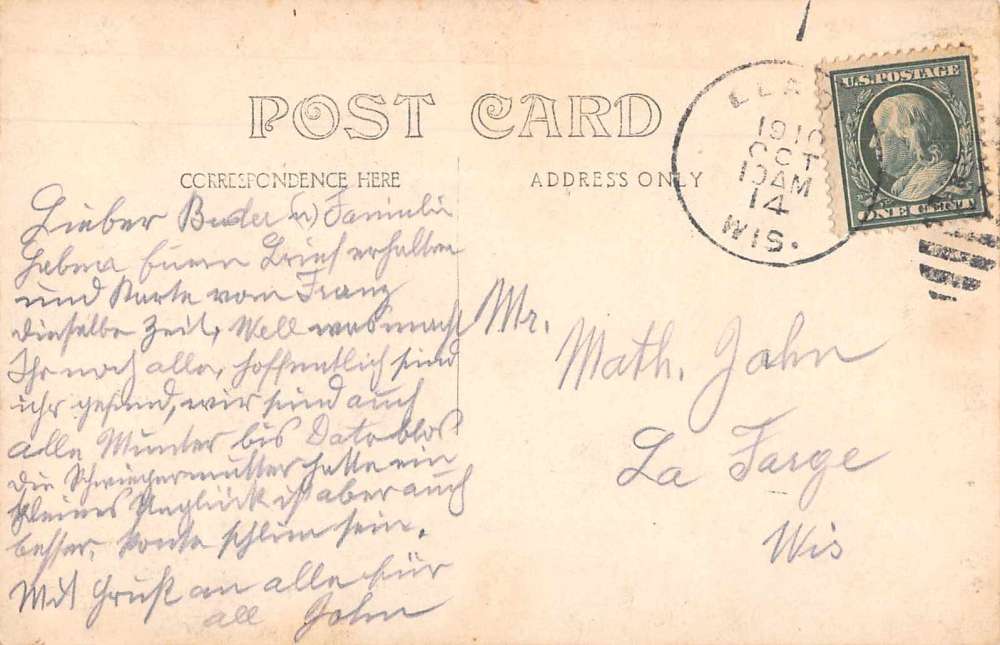 POST CARD
CORRESPONDENCE HERE
ADDRESS ONLY
U.S. POSTAGE
ONE CENT
1910
OCT
10 AM
14
WIS.
Lieber Bruder u Familie
haben Euren Brief erhalten
und Karte vom Franz
dieselbe Zeit, Well was macht
Ihr noch alle, hoffentlich sind
ihr gesund, wir sind auch
alle Munter bis Dato blos
die Schwiegermutter hatte ein
kleines Unglück ist aber auch
besser, konte schlim sein.
Mit Gruß an alle für
all John
Mr.
Math. John
La Farge
Wis